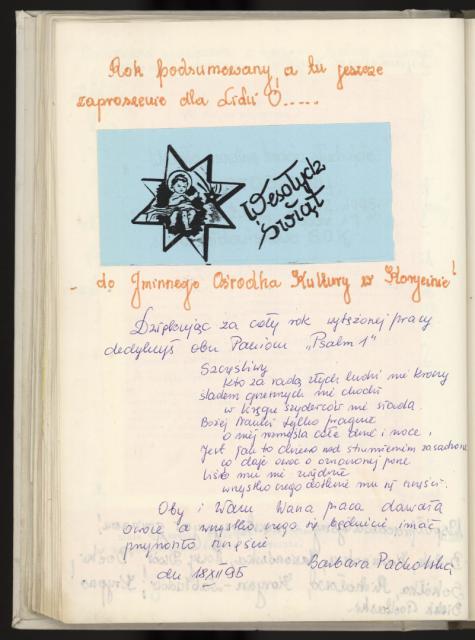 Rok podsumowany, a tu jeszcze
zaproszenie dla Lidii O.....
Wesołych
Świąt
- do Gminnego Ośrodka Kultury w Korycinie!
Dziękując za cały rok wytężonej pracy
dedykuję obu Paniom „Psalm 1"
Szczęśliwy
kto za radą złych ludzi nie kroczy
śladem grzesznych nie chodzi
w kręgu szyderców nie siada.
Bożej Nauki tylko pragnie
o niej rozmyśla całe dnie i noce,
Jest jak to drzewo nad strumieniem zasadzone
co daje owoc o oznaczonej porze
liście mu nie więdną
wszystko czego dotknie mu się szczęści.
Oby i Wam Wasza praca dawała
owoce a wszystko czego się będziecie imać
przynosiło szczęście
Barbara Pacholska
dn 18 XII 95